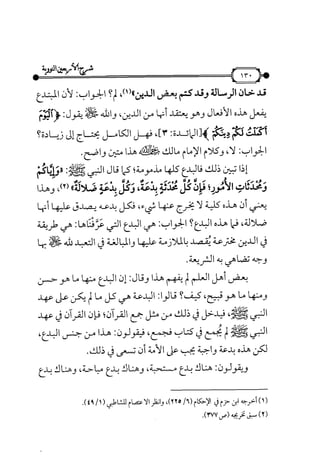 شرح الأربعين النووية
١٣٠
قد خان الرسالة وقد كتم بعض الدين»(١)، لم؟ الجواب: لأن المبتدع
يفعل هذه الأفعال وهو يعتقد أنها من الدين، والله ﷺ يقول: ﴿ٱلۡيَوۡمَ
أَكۡمَلۡتُ لَكُمۡ دِينَكُمۡ﴾ [المائدة: ٣]، فهل الكامل يحتاج إلى زيادة؟
الجواب: لا، وكلام الإمام مالك هذا متين واضح.
إذا تبين ذلك فالبدع كلها مذمومة؛ كما قال النبي ﷺ: «وَإِيَّاكُمْ
وَمُحْدَثَاتِ الأُمُورِ؛ فَإِنَّ كُلَّ مُحْدَثَةٍ بِدْعَةٌ، وَكُلَّ بِدْعَةٍ ضَلَالَةٌ»(٢)، وهذا
يعني أن هذه كلية لا يخرج عنها شيء، فكل بدعه يصدق عليها أنها
ضلالة، فما هذه البدع؟ الجواب: هي البدع التي عَرَّفْنَاها: هي طريقة
في الدين مخترعة يُقصد بالملازمة عليها والمبالغة في التعبد لله ﷻ بها
وجه تضاهي به الشريعة.
بعض أهل العلم لم يفهم هذا وقال: إن البدع منها ما هو حسن
ومنها ما هو قبيح، كيف؟ قالوا: البدعة هي كل ما لم يكن على عهد
النبي ﷺ، فيدخل في ذلك من مثل جمع القرآن؛ فإن القرآن في عهد
النبي ﷺ لم يُجمع في كتاب فجمع، فيقولون: هذا من جنس البدع،
لكن هذه بدعة واجبة يجب على الأمة أن تسعى في ذلك.
ويقولون: هناك بدع مستحبة، وهناك بدع مباحة، وهناك بدع
(١) أخرجه ابن حزم في الإحكام (٦/ ٢٢٥)، وانظر الاعتصام للشاطبي (١/ ٤٩).
(٢) سبق تخريجه (ص ٣٧٧).